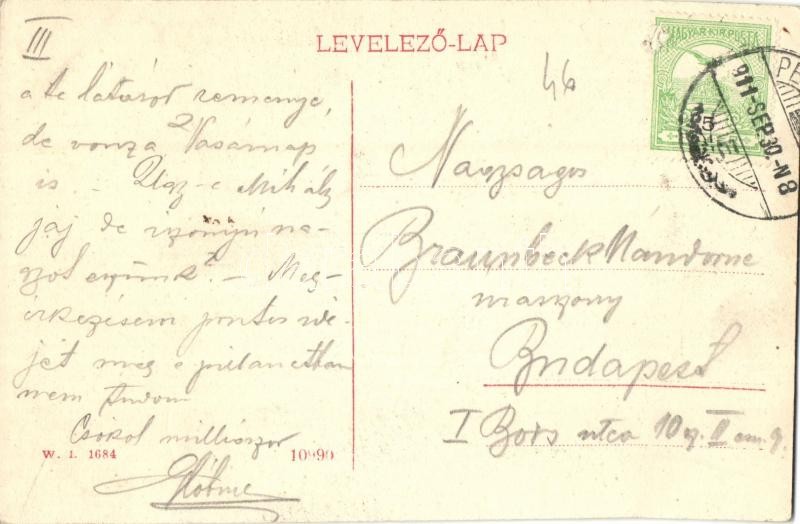 III
LEVELEZŐ-LAP
46
MAGYAR KIR. POSTA
911 SEP. 30. N 8
a te látásod reménye,
de vonza Vasárnap
is. – Ugy-e Mihály
jaj de iszonyú na-
gyot – Meg-
érkezésem pontos ide-
jét meg e pillanatban
nem tudom
Csókol milliószor
Nagyságos
Braunbeck Nándorné
urasszony
Budapest
I Bors utca 10 sz. II em. 9.
W. L. 1684
10990